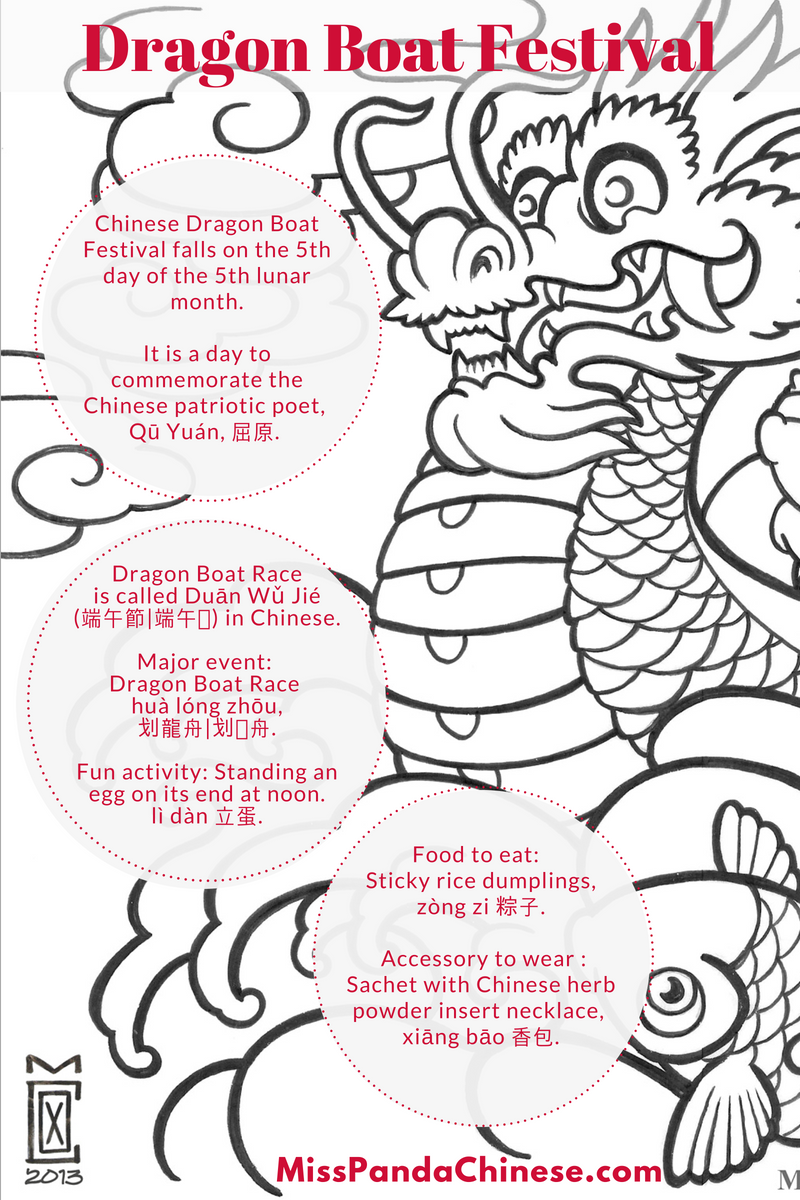 Dragon Boat Festival
Chinese Dragon Boat
Festival falls on the 5th
day of the 5th lunar
month.
It is a day to
commemorate the
Chinese patriotic poet,
Qū Yuán, 屈原.
Dragon Boat Race
is called Duān Wǔ Jié
(端午節|端午▯) in Chinese.
Major event:
Dragon Boat Race
huà lóng zhōu,
划龍舟|划▯舟.
Fun activity: Standing an
egg on its end at noon.
lì dàn 立蛋.
Food to eat:
Sticky rice dumplings,
zòng zi 粽子.
Accessory to wear :
Sachet with Chinese herb
powder insert necklace,
xiāng bāo 香包.
2013
MissPandaChinese.com